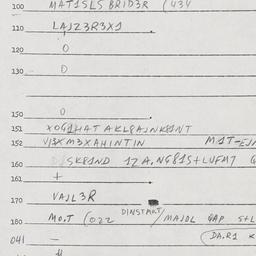 100 MAT1SLS BRID3R (434
110 LAJZ3R3X1
120 0
130 0
150 0
151 XOG1HAT AKL8AJNK8INT
152 M3XAHINTIN MAT-EJN
160 SK81ND 1Z A.NG81S+LUFM7
161 +
170 VAJL3R
180 MO.T (022 DINSTART/MAJOL GAP S+L
041 — (DA.R1 K